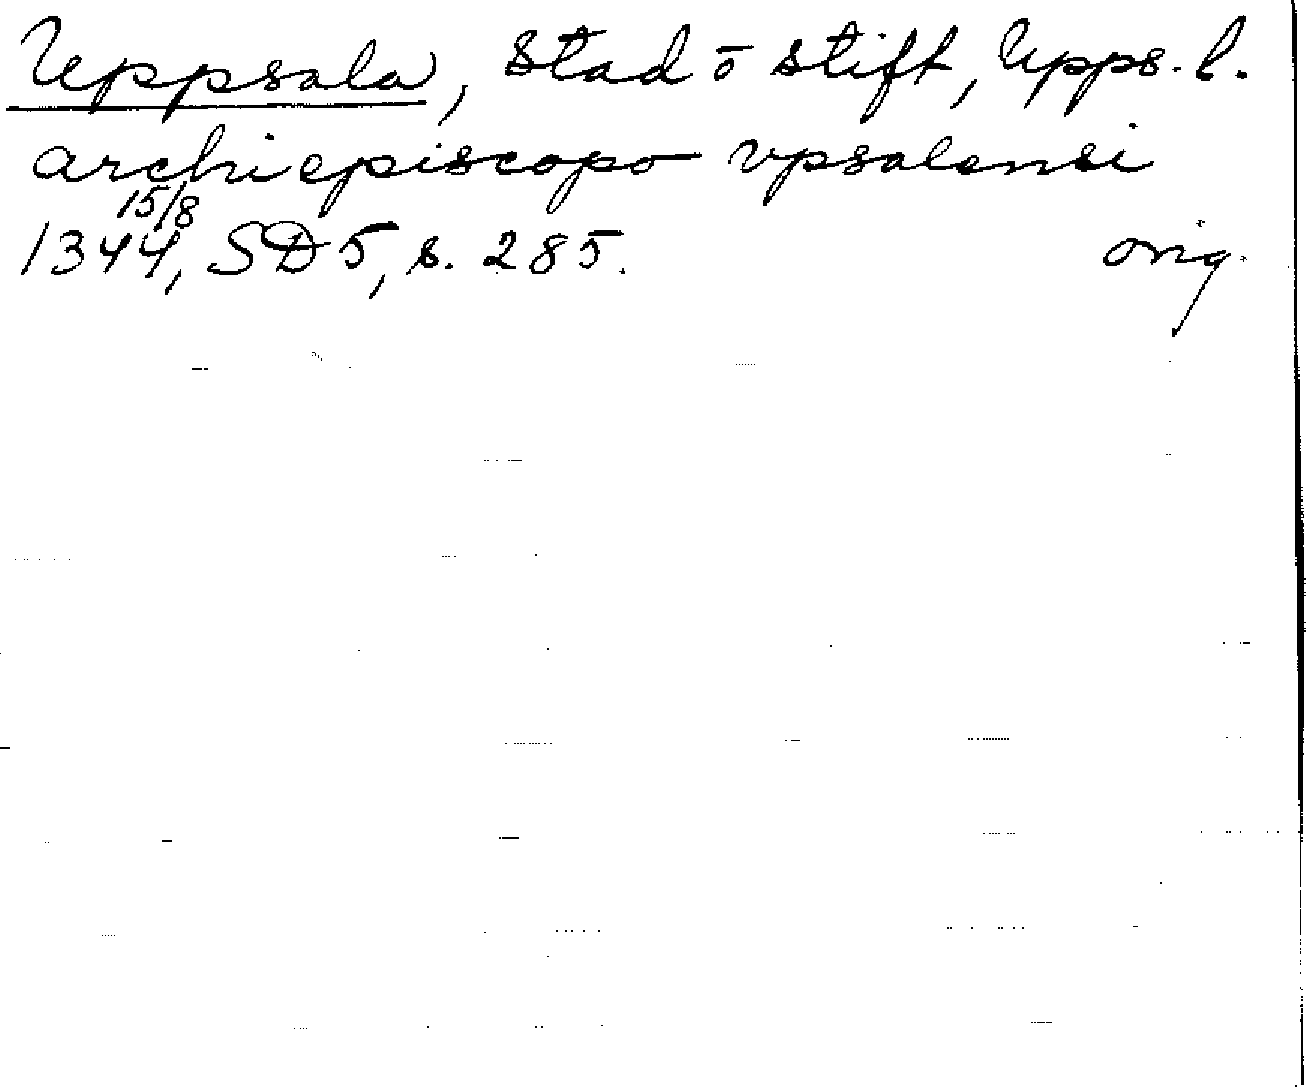 Uppsala, stad o stift, Upps. l.
archiepiscopo vpsalensi
15/8
1344, SD 5, s. 285. orig.